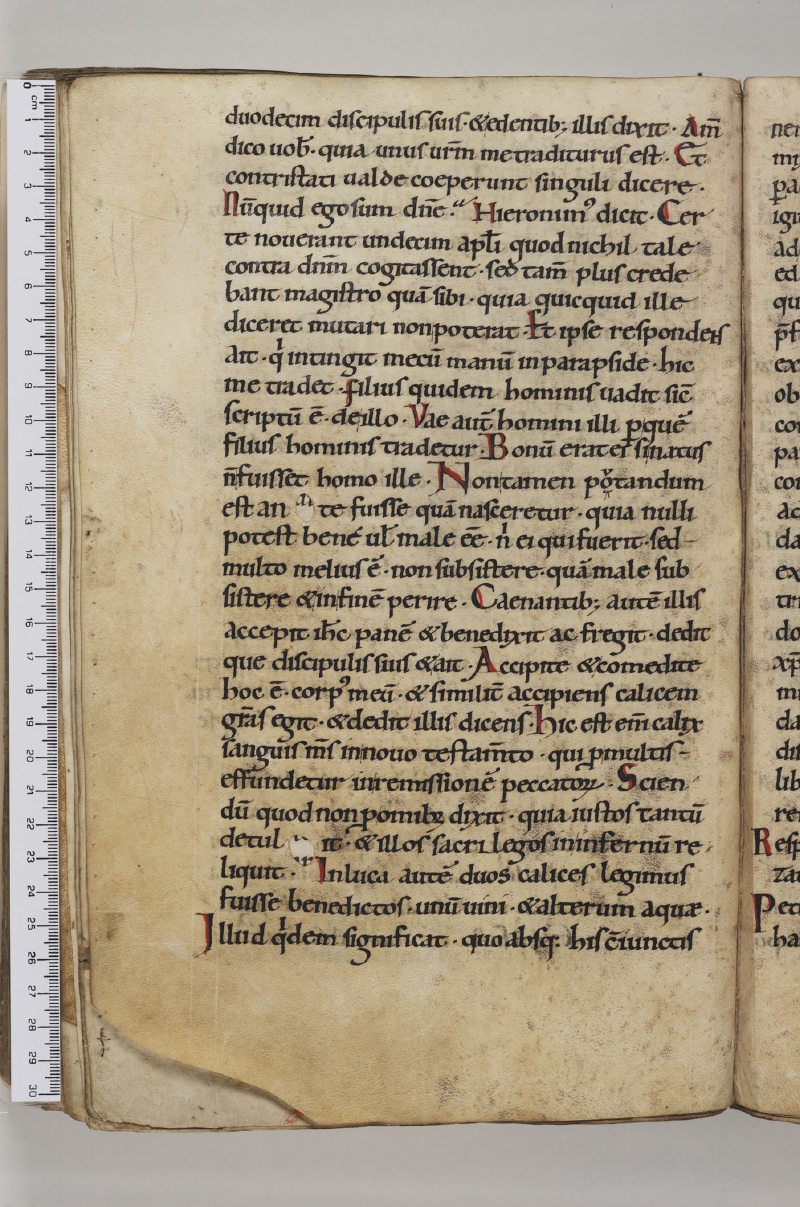 duodecim discipulis suis · & edentib; illis dixit · Am̅
dico uob̅ · quia unus ur̅m me traditurus est · Et
contristati ualde coeperunt singuli dicere ·
Nu̅quid ego sum dn̅e · Hieronimꝰ dicit · Cer
te nouerant undecim apl̅i quod nichil tale
contra dnm̅ cogitassent · sed tam̅ plus crede
bant magistro qua̅ sibi · quia quicquid ille
diceret mutari non poterat · Et ipse respondens
ait · qͥ intingit mecu̅ manu̅ in parapside · hic
me tradet · filius quidem hominis uadit sic̅
scriptu̅ e̅ · de illo · Vae aut̅ homini illi ꝑ que̅
filius hominis tradetur · Bonu̅ erat ei si natus
n̅ fuisset homo ille · Non tamen putandum
est an te fuisse qua̅ nasceretur · quia nulli
potest bene ul̅ male ee̅ · nͥ ei qui fuerit · sed
multo melius e̅ · non subsistere · qua̅ male sub
sistere & in fine̅ perire · Caenantib; aute̅ illis
accepit ih̅c pane̅ & benedixit ac fregit · dedit
que discipulis suis & ait · Accipite & comedite
hoc e̅ · corpꝰ meu̅ · & similit̅ accipiens calicem
gr̅as egit · & dedit illis dicens · Hic est em̅ calix
sanguis m̅s in nouo testam̅to · qui ꝑ multis
effundetur in remissione̅ peccatoꝝ · Scien
du̅ quod non ꝑ omib; dixit · quia iustos tantu̅
detul it · & illos sacrilegos in infernu̅ re
liquit · In luca aute̅ duos calices legimus
fuisse benedictos · unu̅ uini · & alterum aquæ ·
Illud qͥdem significat · quo absq; his ce̅iunctis
nei
mi
pa
igi
ad
ed
qu
ex
ob
cor
pa
con
ac
da
ex
tri
do
xp̅
mi
da
dis
lib
rei
Resp
zai
Pet
ha